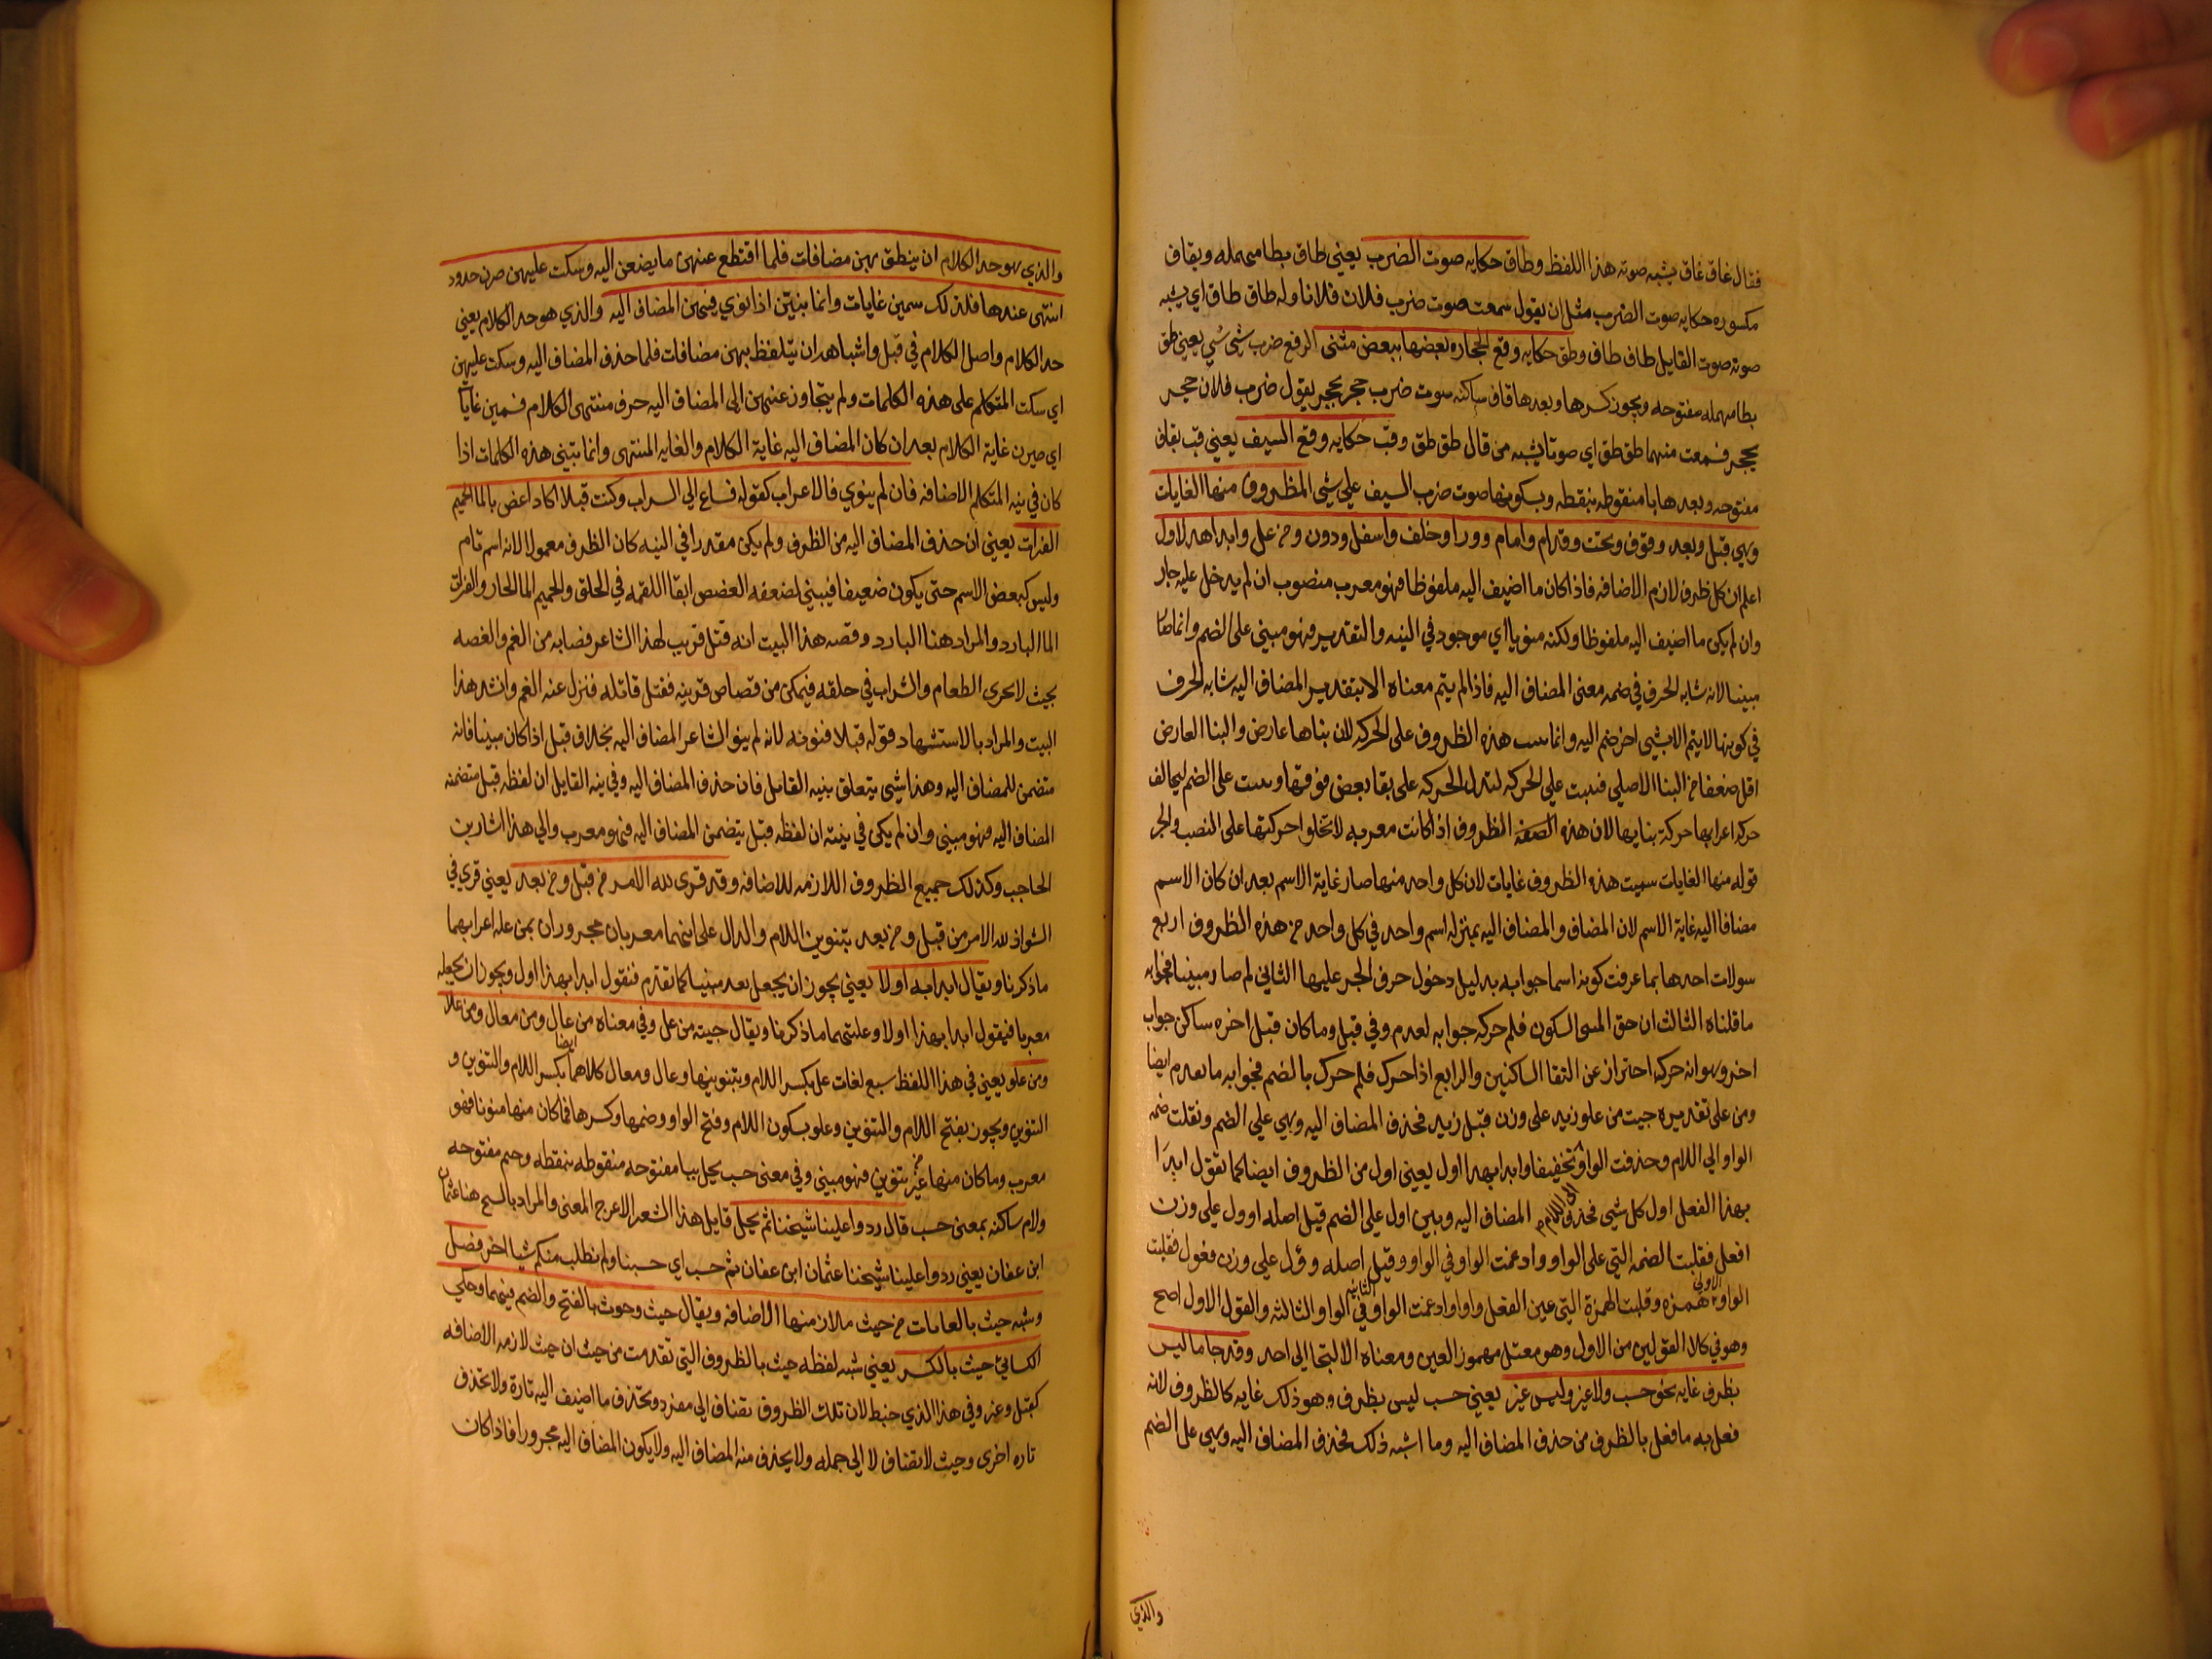 فقال غاق غاق يشبه صوته هذا اللفظ وطاق حكايه صوت الضرب يعني طاق بطا مهمله وبقاف
مكسوره حكايه صوت الضرب مثل ان يقول سمعت صوت ضرب فلان فلانا وله طاق طاق اي يشبه
صوته صوت القايل طاق طاق وطق حكايه وقع الحجاره بعضها ببعض الوقع ضرب شي شي يعني طق
بطا مهمله مفتوحه ويجوز كسرها وبعدها قاف ساكنه صوت ضرب حجر بحجر يقول ضرب فلان حجر
بحجر فسمعت منهما طق طق اي صوتا يشبه من قال طق طق وقب حكايه وقع السيف يعني قب بقاف
مفتوحه وبعدها با منقوطه بنقطه وبسكونها صوت ضرب السيف علي شي الظروف منها الغايات
وهي قبل وبعد وفوق وتحت وقدام وامام وورا وخلف واسفل ودون ومن عل وابدا بهذا اول
اعلم ان كل ظرف لازم الاضافه فاذا كان ما اضيف اليه ملفوظا فهو معرب منصوب ان لم يدخل عليه جار
وان لم يكن ما اضيف اليه ملفوظا ولكنه منويا اي موجود في النيه والتقدير فهو مبني على الضم وانما صار
مبنيا لانه شابه الحرف في ضمه معنى المضاف اليه فاذا لم يتم معناه الا بتقدير المضاف اليه شابه الحرف
في كونها لا يتم الا بشي اخر ضم اليه وانما بنيت هذه الظروف على الحركه لان بناها عارض والبنا العارض
اقل ضعفا من البنا الاصلي فبنيت علي الحركه لتدل الحركه على بقا بعض قوتها وبنيت على الضم ليخالف
حركه اعرابها حركة بنايها لان هذه الظروف اذا كانت معربه لا تخلوا حركتها على النصب والجر
قوله منها الغايات سميت هذه الظروف غايات لان كل واحد منها صار غاية الاسم بعد ان كان الاسم
مضافا اليه غاية الاسم لان المضاف والمضاف اليه بمنزله اسم واحد في كل واحد من هذه الظروف اربع
سولات احدها بما عرفت كونه اسما جوابه بدليل دخول حرف الجر عليها الثاني لم صار مبنيا فجوابه
ما قلناه الثالث ان حق المبنى السكون فلم حركه جوابه لعدم وفي قبل وما كان قبل اخره ساكن جواب
اخر وهو انه حركه احتراز عن التقا الساكنين والرابع اذا حرك فلم حرك بالضم فجوابه ما تقدم ايضا
ومن على تقديره جيت من علو زيد على وزن قبل زيد فحذف المضاف اليه وبني علي الضم ونقلت ضمه
الواو الي اللام وحذفت الواو تخفيفا وابدا بهذا اول يعني اول من الظروف ايضا كما تقول ابدا
بهذا الفعل اول كل شي فحذف المضاف اليه وبني اول علي الضم قيل اصله اوول علي وزن
افعل فقلبت الضمه التي على الواو وادغمت الواو في الواو وقيل اصله وول علي وزن فوعل فقلبت
الواو الاولي همزه وقلبت الهمزة التي عين الفعل واوا وادغمت الواو الثانيه في الواو الثالثه والقول الاول اصح
وهو في كلا القولين من الاول وهو معتل مهموز العين ومعناه الالتجا الى احد وقد جا ما ليس
بظرف غايه نحو حسب ولا غير وليس غير يعني حسب ليس بظرف وهو ذلك غايه كالظروف لانه
فعل به ما فعل بالظرف من حذف المضاف اليه وما اشبه ذلك فحذف المضاف اليه وبني على الضم
والذي
والذي هو حد الكلام ان ينطق بهن مضافات فلما اقتطع عنهن ما يضفن اليه وسكت عليهن صرن حدودا
انتهى عندها فلذلك سمين غايات وانما بنين اذا نوي فيهن المضاف اليه والذي هو حد الكلام يعني
حد الكلام واصل الكلام في قبل واشباهه ان يتلفظ بهن مضافات فلما حذف المضاف اليه وسكت عليهن
اي سكت المتكلم على هذه الكلمات ولم يتجاوز عنهن الى المضاف اليه حرف منتهى الكلام فسمين غايات
اي صيرن غاية الكلام بعد ان كان المضاف اليه غاية الكلام والغايه المنتهى وانما تبنى هذه الكلمات اذا
كان في نيه المتكلم الاضافه فان لم ينوي فالاعراب كقوله فساغ الي الشراب وكنت قبلا اكاد اغص بالما الحميم
الفرات يعني ان حذف المضاف اليه من الظرف ولم يكن مقدرا في النيه كان الظرف معمولا لانه اسم تام
وليس كبعض الاسم حتى يكون ضعيفا فيبني لضعفه الغصص ابقا اللقمه في الحلق والحميم الما الحار والفرات
الما البارد والمراد هنا البارد وقصه هذا البيت انه قتل قريب لهذا الشاعر فصابه من الغم والغصه
بحيث لا يجرى الطعام والشراب في حلقه فتمكن من قصاص قرينه فقتل قاتله فنزل عنه الغم وانشد هذا
البيت والمراد بالاستشهاد قوله قبلا فنونه لانه لم ينو الشاعر المضاف اليه بخلاف قبل اذا كان مبنيا فانه
متضمن للمضاف اليه وهذا شي يتعلق بنيه القايل فان حذف المضاف اليه وفي نيه القايل ان لفظه قبل متضمنه
المضاف اليه فهو مبني وان لم يكن في نيته ان لفظه قبل يتضمن المضاف اليه فهو معرب والي هذا اشار بن
الحاجب وكذلك جميع الظروف اللازمه للاضافه وقد قرى لله الامر من قبل ومن بعد يعني قري في
الشواذ لله الامر من قبل ومن بعد بتنوين اللام والدال على انهما معربان مجروران بمن عله اعرابهما
ما ذكرنا ويقال ابدا به اولا يعني يجوز ان يجعل بعد مبنيا كما تقدم فنقول ابدا بهذا اول ويجوز ان يجعله
معربا فيقول ابدا بهذا اولا وعلتهما ما ذكرنا ويقال جيت من عل وفي معناه من عال ومن معال ومن علا
ومن علو يعني في هذا اللفظ سبع لغات عل بكسر اللام وبتنوينها وعال ومعال كلاهما ايضا بكسر اللام والتنوين و
التنوين ويجوز بفتح اللام والتنوين وعلو بسكون اللام وفتح الواو وضمها وكسرها فما كان منها منونا فهو
معرب وما كان منها غير تنوين فهو مبني وفي معنى حسب بجل ببا مفتوحه منقوطه بنقطه وجيم مفتوحه
ولام ساكنه بمعنى حسب قال ردوا علينا شيخنا ثم بجل قايل هذا الشعر الاعرج المعنى والمراد بالشيخ هنا عثمان
ابن عفان يعني ردوا علينا شيخنا عثمان ابن عفان ثم حسب اي حسبنا ولم نطلب منكم شيا اخر فصل
وشبه حيث بالغايات من حيث ملازمتها الاضافه ويقال حيث وحوث بالفتح والضم فيهما وحكي
الكسائي حيث بالكسر يعني شبه لفظه حيث بالظروف التي تقدمت من حيث ان حيث لازمه الاضافه
كقبل وغيره وفي هذا الذي خبط لان تلك الظروف تضاف الى مفرد وتحذف ما اضيف اليه تارة ولا تحذف
تاره اخرى وحيث لا تضاف لا الى جمله ولا يحذف منه المضاف اليه ولا يكون المضاف اليه مجرورا فاذا كان